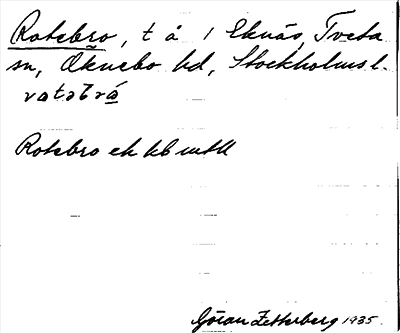 Rotebro, t å 1 Eknäs, Tveta
sn, Öknebo hd, Stockholms l.
Rotebro ek kb mtll
Göran Zetterberg 1935.